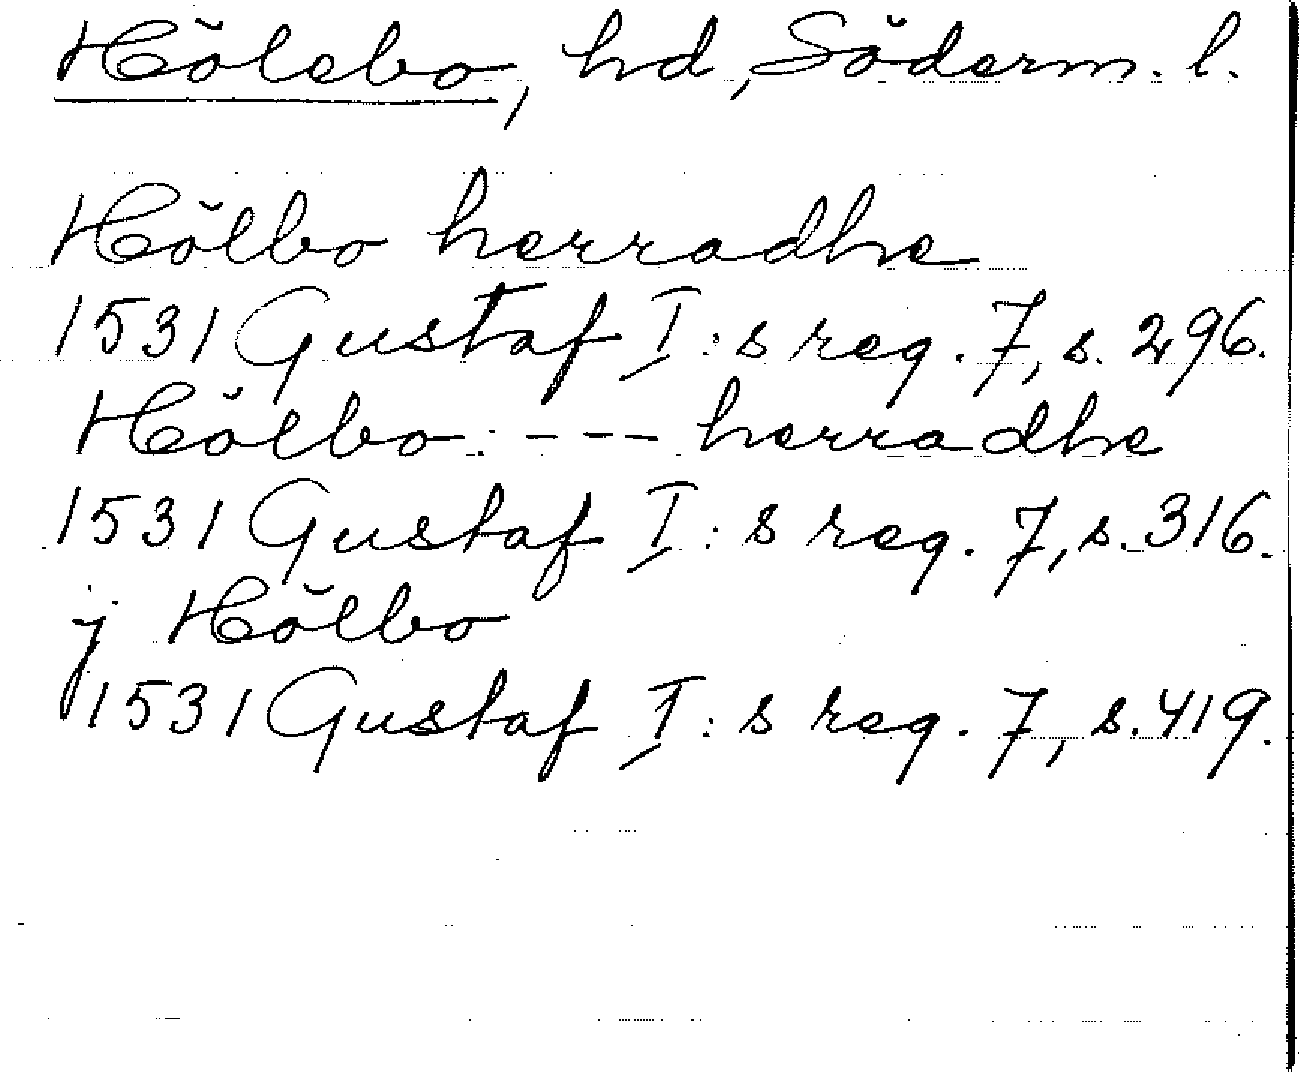 Hölebo, hd, Söderm. l.
Hölbo herradhe
1531 Gustaf I:s reg. 7, s. 296.
Hölbo --- herradhe
1531 Gustaf I:s reg. 7, s. 316.
j Hölbo
1531 Gustaf I:s reg. 7, s. 419.